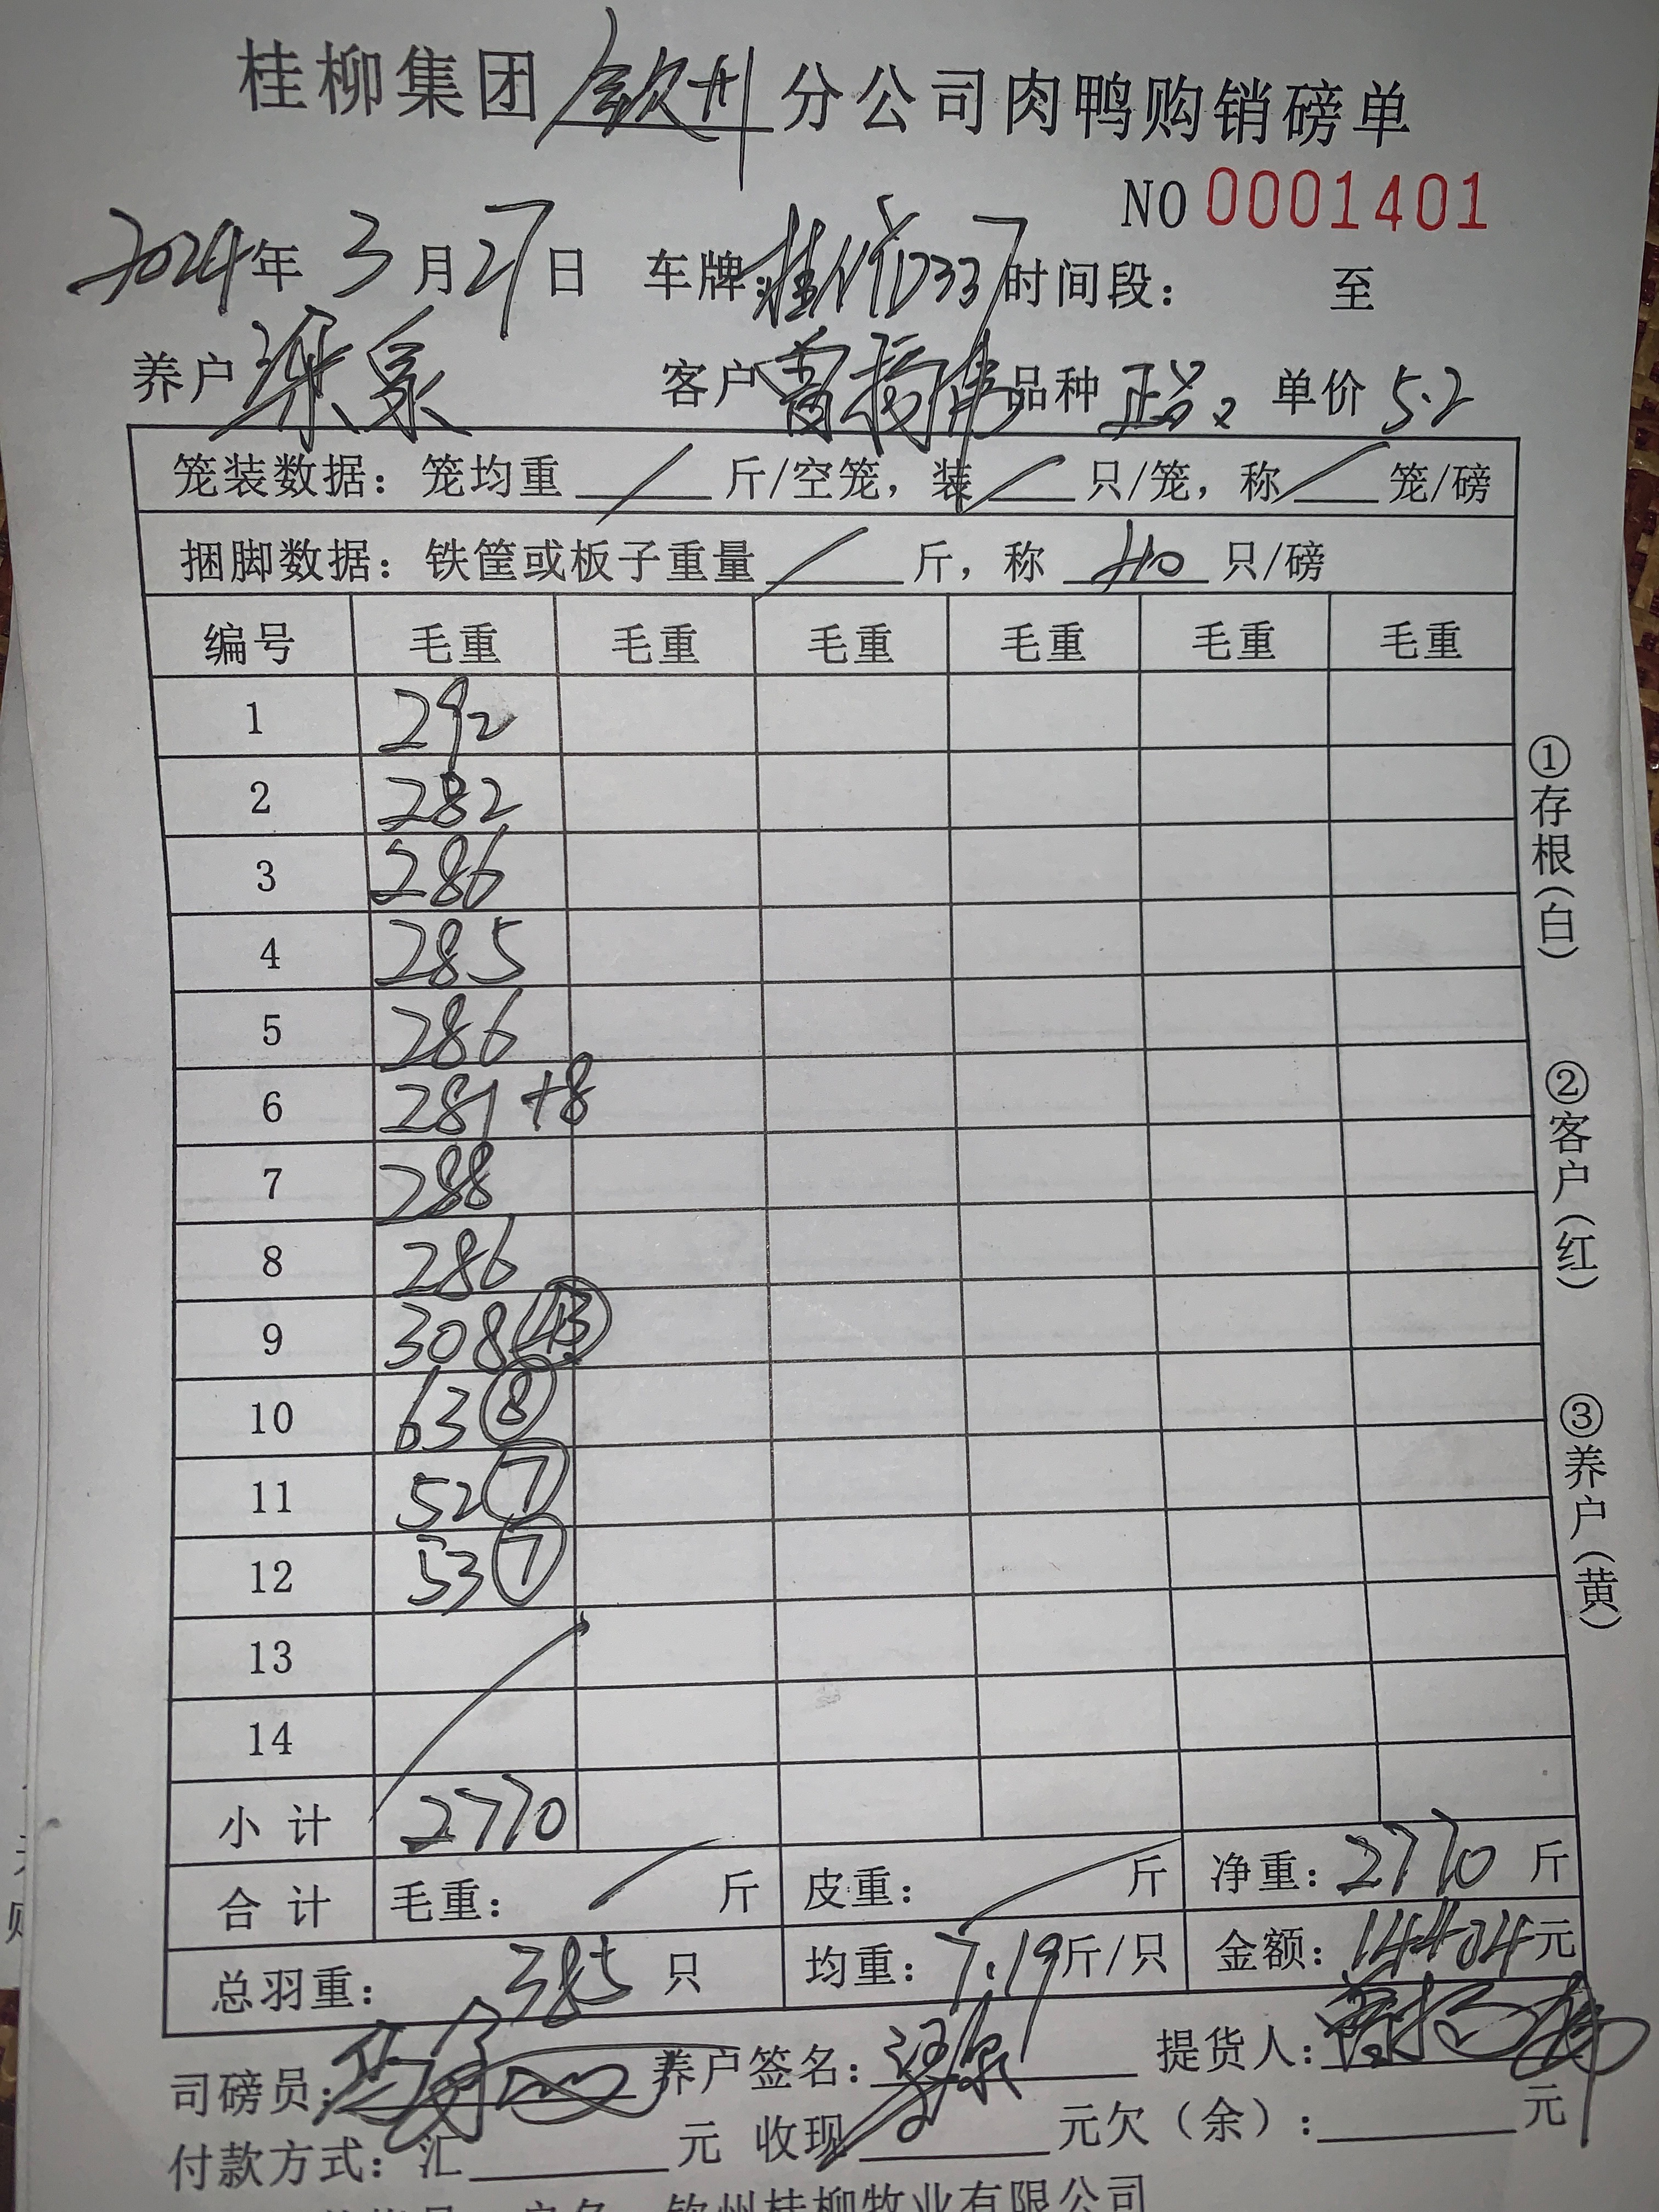 桂柳集团钦州分公司肉鸭购销磅单
NO 0001401
2024年3月27日 车牌: D337 时间段: 至
养户 梁泉 客户 曾 伟 品种 正 单价 5.2
笼装数据: 笼均重 / 斤/空笼, 装 / 只/笼, 称 / 笼/磅
捆脚数据: 铁筐或板子重量 / 斤, 称 40 只/磅
编号 毛重 毛重 毛重 毛重 毛重 毛重
1 292
2 282
3 286
4 285
5 286
6 281 +8
7 288
8 286
9 308 43
10 63 8
11 52 7
12 53 7
13
14
小计 2770
合计 毛重: / 斤 皮重: / 斤 净重: 2770 斤
总羽重: 385 只 均重: 7.19 斤/只 金额: 14404 元
司磅员: 养户签名: 梁泉 提货人:
付款方式: 汇 元 收现 元欠(余): 元
钦州桂柳牧业有限公司
①存根(白)
②客户(红)
③养户(黄)